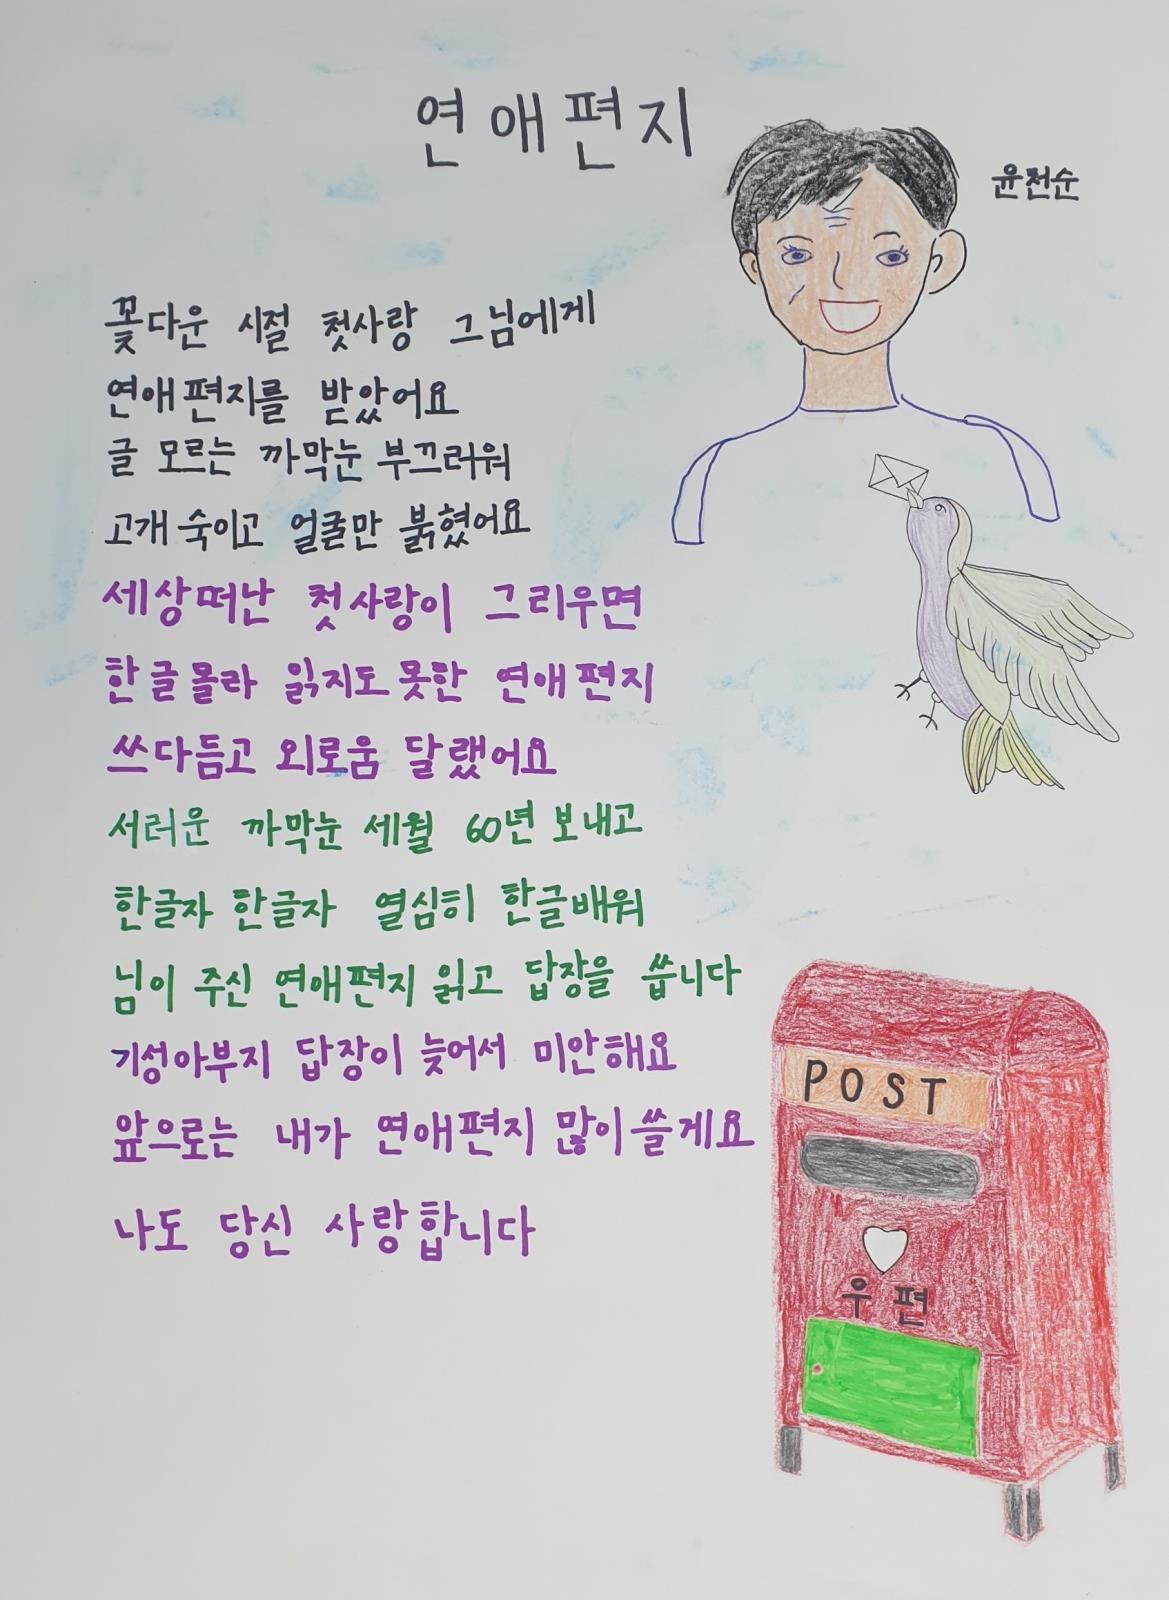 연애편지
윤전순
꽃다운 시절 첫사랑 그님에게
연애편지를 받았어요
글 모르는 까막눈 부끄러워
고개 숙이고 얼굴만 붉혔어요
세상떠난 첫사랑이 그리우면
한글몰라 읽지도 못한 연애편지
쓰다듬고 외로움 달랬어요
서러운 까막눈 세월 60년 보내고
한글자 한글자 열심히 한글배워
님이 주신 연애편지 읽고 답장을 씁니다
기성아부지 답장이 늦어서 미안해요
앞으로는 내가 연애편지 많이 쓸게요
나도 당신 사랑합니다
POST
우편